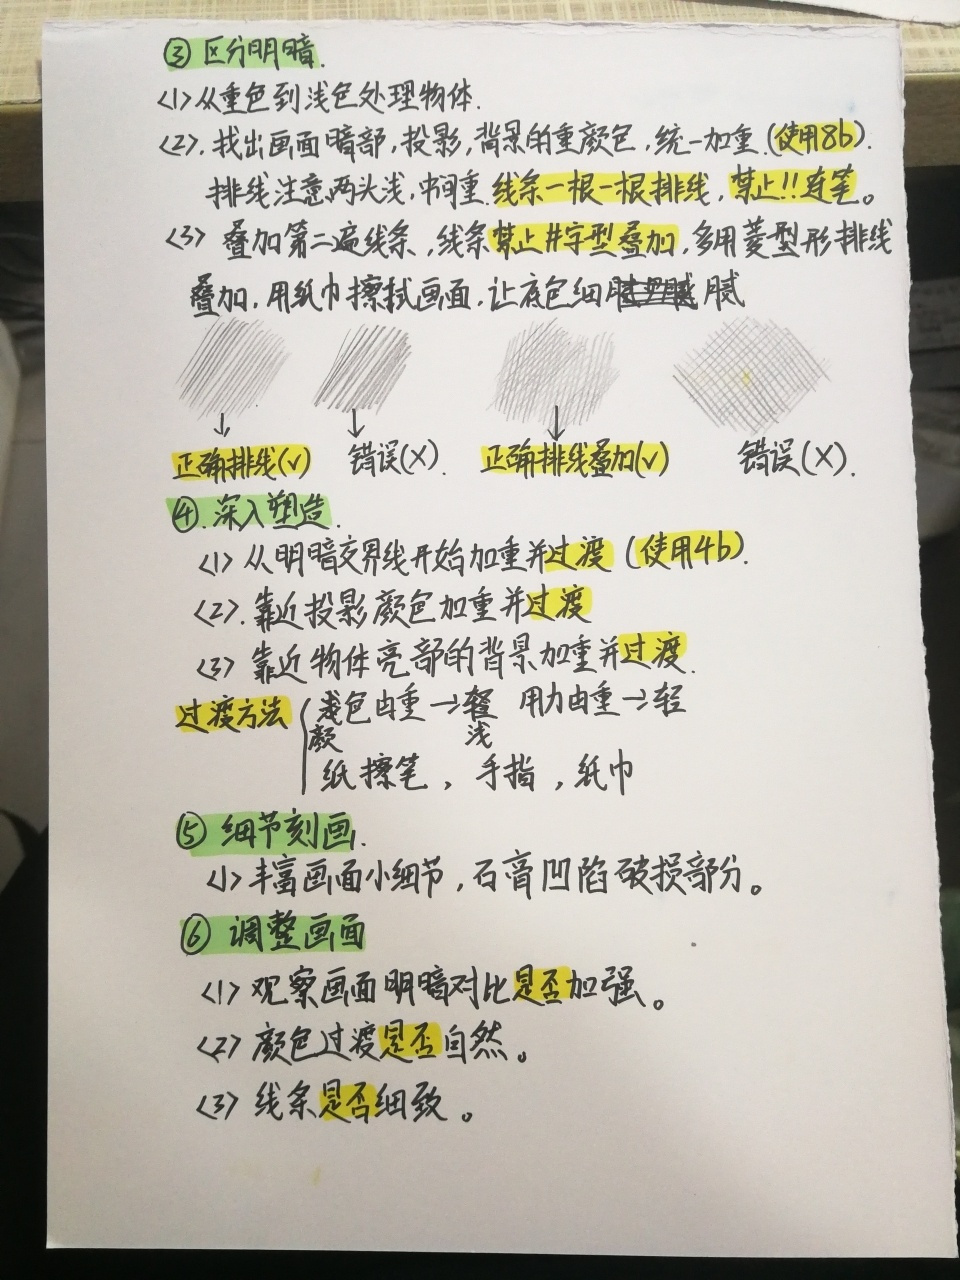 ③ 区分明暗.
<1>从重色到浅色处理物体.
<2>.找出画面暗部,投影,背景的重颜色,统一加重.(使用8b).
排线注意两头浅,中间重.线条一根一根排线,禁止!!连笔。
<3> 叠加第二遍线条,线条禁止井字型叠加,多用菱型形排线
叠加.用纸巾擦拭画面,让底色细腻
正确排线(√) 错误(X). 正确排线叠加(√) 错误(X).
④.深入塑造.
<1>从明暗交界线开始加重并过渡(使用4b).
<2>.靠近投影颜色加重并过渡
<3>靠近物体亮部的背景加重并过渡.
过渡方法 浅色由重→轻 用力由重→轻
颜 浅
纸擦笔,手指,纸巾
⑤ 细节刻画.
<1>丰富画面小细节,石膏凹陷破损部分。
⑥ 调整画面
<1>观察画面明暗对比是否加强。
<2>颜色过渡是否自然。
<3>线条是否细致。